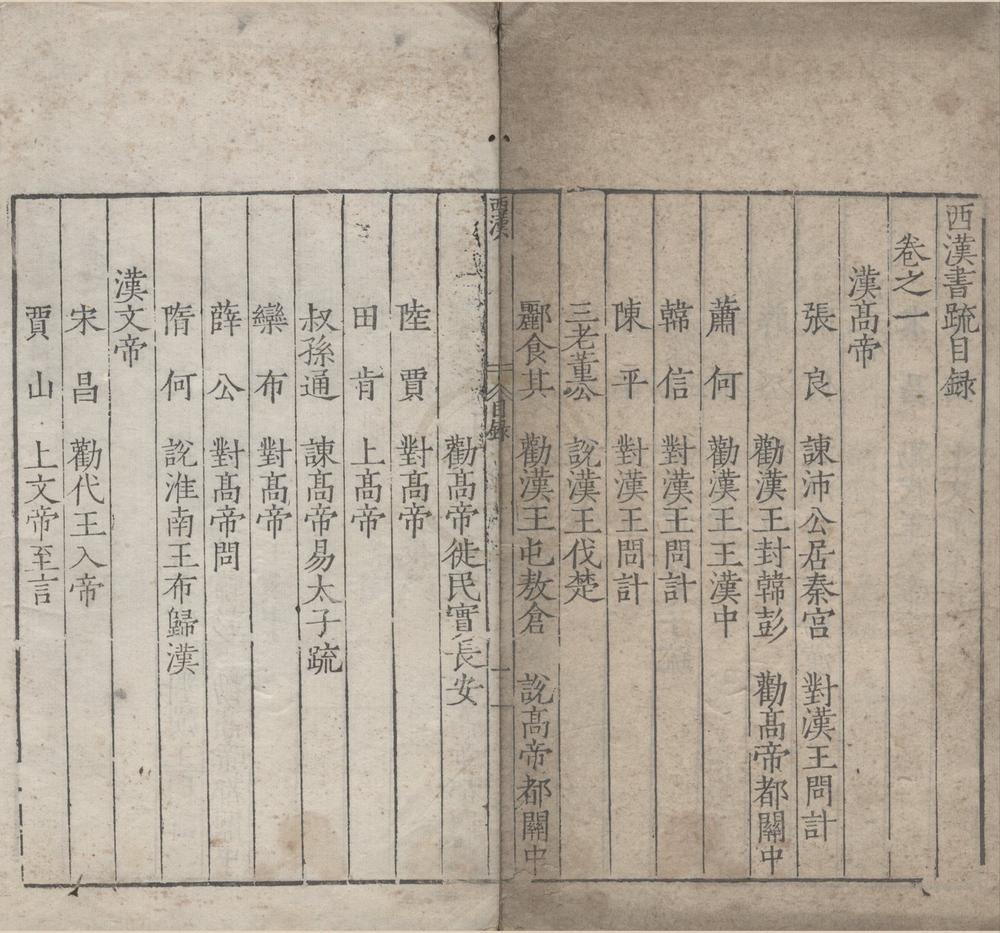 西漢書疏目録
卷之一
漢髙帝
張良 諫沛公居秦宫 對漢王問計
勸漢王封韓彭 勸髙帝都關中
蕭何 勸漢王王漢中
韓信 對漢王問計
陳平 對漢王問計
三老董公 說漢王伐楚
酈食其 勸漢王屯敖倉 說髙帝都關中
西漢
目録
一
勸髙帝徙民實長安
陸賈 對髙帝
田肯 上髙帝
叔孫通 諫髙帝易太子疏
欒布 對髙帝
薛公 對髙帝問
隋何 說淮南王布歸漢
漢文帝
宋昌 勸代王入帝
賈山 上文帝至言